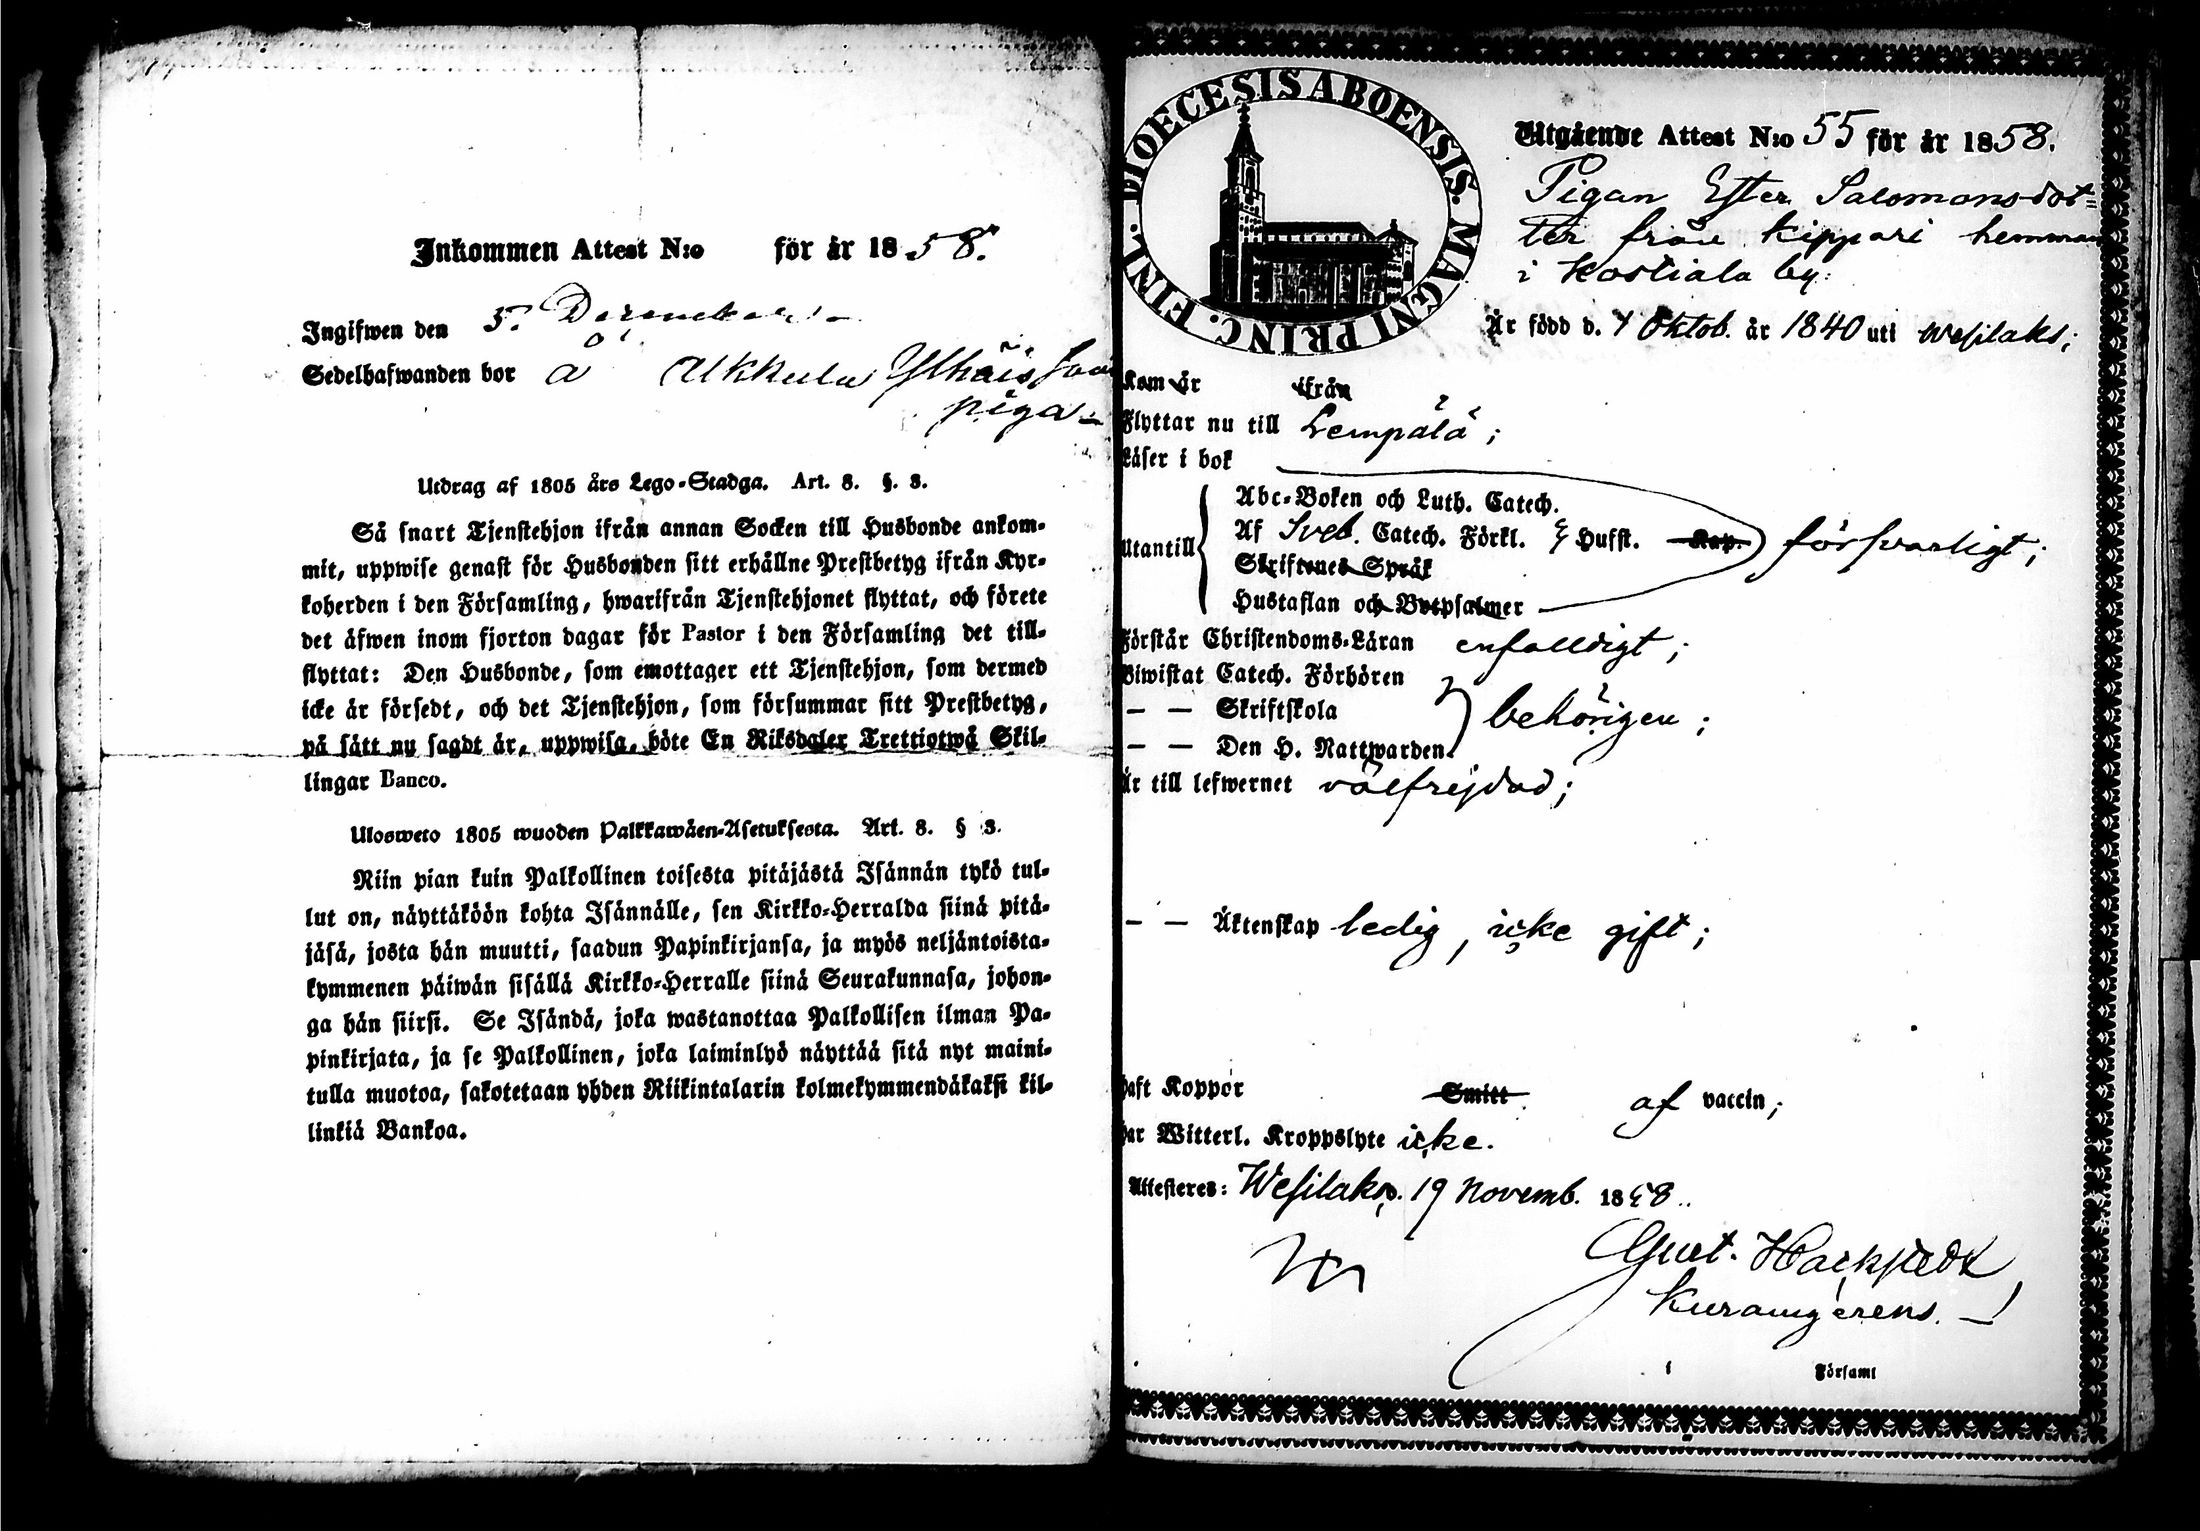 Inkommen Attest N:o för år 1858.
Ingifwen den 5.
Sedelhafwanden bor å Ukkula
piga
Utdrag af 1805 års Lego-Stadga. Art. 8. §. 3.
Så snart Tjenstehjon ifrån annan Socken till Husbonde ankom-
mit, uppwise genast för Husbonden sitt erhållne Prestbetyg ifrån Kyr-
koherden i den Församling, hwarifrån Tjenstehjonet flyttat, och förete
det äfwen inom fjorton dagar för Pastor i den Församling det till-
flyttat: Den Husbonde, som emottager ett Tjenstehjon, som dermed
icke är försedt, och det Tjenstehjon, som försummar sitt Prestbetyg,
på sätt nu sagdt är, uppwisa, böte En Riksdaler Trettiotwå Skil-
lingar Banco.
Ulosweto 1805 wuoden Palkkawäen-Asetuksesta. Art. 8. § 3.
Niin pian kuin Palkollinen toisesta pitäjästä Isännän tykö tul-
lut on, näyttäköön kohta Isännälle, sen Kirkko-Herralda siinä pitä-
jäsä, josta hän muutti, saadun Papinkirjansa, ja myös neljäntoista-
kymmenen päiwän sisällä Kirkko-Herralle siinä Seurakunnasa, johon-
ga hän siirsi. Se Isändä, joka wastanottaa Palkollisen ilman Pa-
pinkirjata, ja se Palkollinen, joka laiminlyö näyttää sitä nyt maini-
tulla muotoa, sakotetaan yhden Riikintalarin kolmekymmendäkaksi kil-
linkiä Bankoa.
DIOECESIS ABOENSIS. MAGNI PRINC. FINL.
Utgående Attest N:o 55 för år 1858.
Pigan Ester Salomonsdot=
ter från Kippari hemman
i Kostiala by.
Är född d. 1 Oktob. år 1840 uti Wesilaks;
Kom år ifrån
Flyttar nu till Lempälä;
Läser i bok
Abc-Boken och Luth. Catech.
Utantill Af Sveb. Catech. Förkl. Husst. Kap. försvarligt;
Skriftenes Språk
Hustaflan och Botpsalmer
Förstår Christendoms-Läran enfalldigt;
Biwistat Catech. Förhören
— — Skriftskola behörigen;
— — Den H. Nattwarden
Är till lefwernet välfrejdad;
— — Äktenskap ledig, icke gift;
haft Koppor Smitt af vaccin;
har Witterl. Kroppslyte icke.
Attesteres: Wesilaks d. 19 Novemb. 1858.
Gust. Hackstedt
Församl